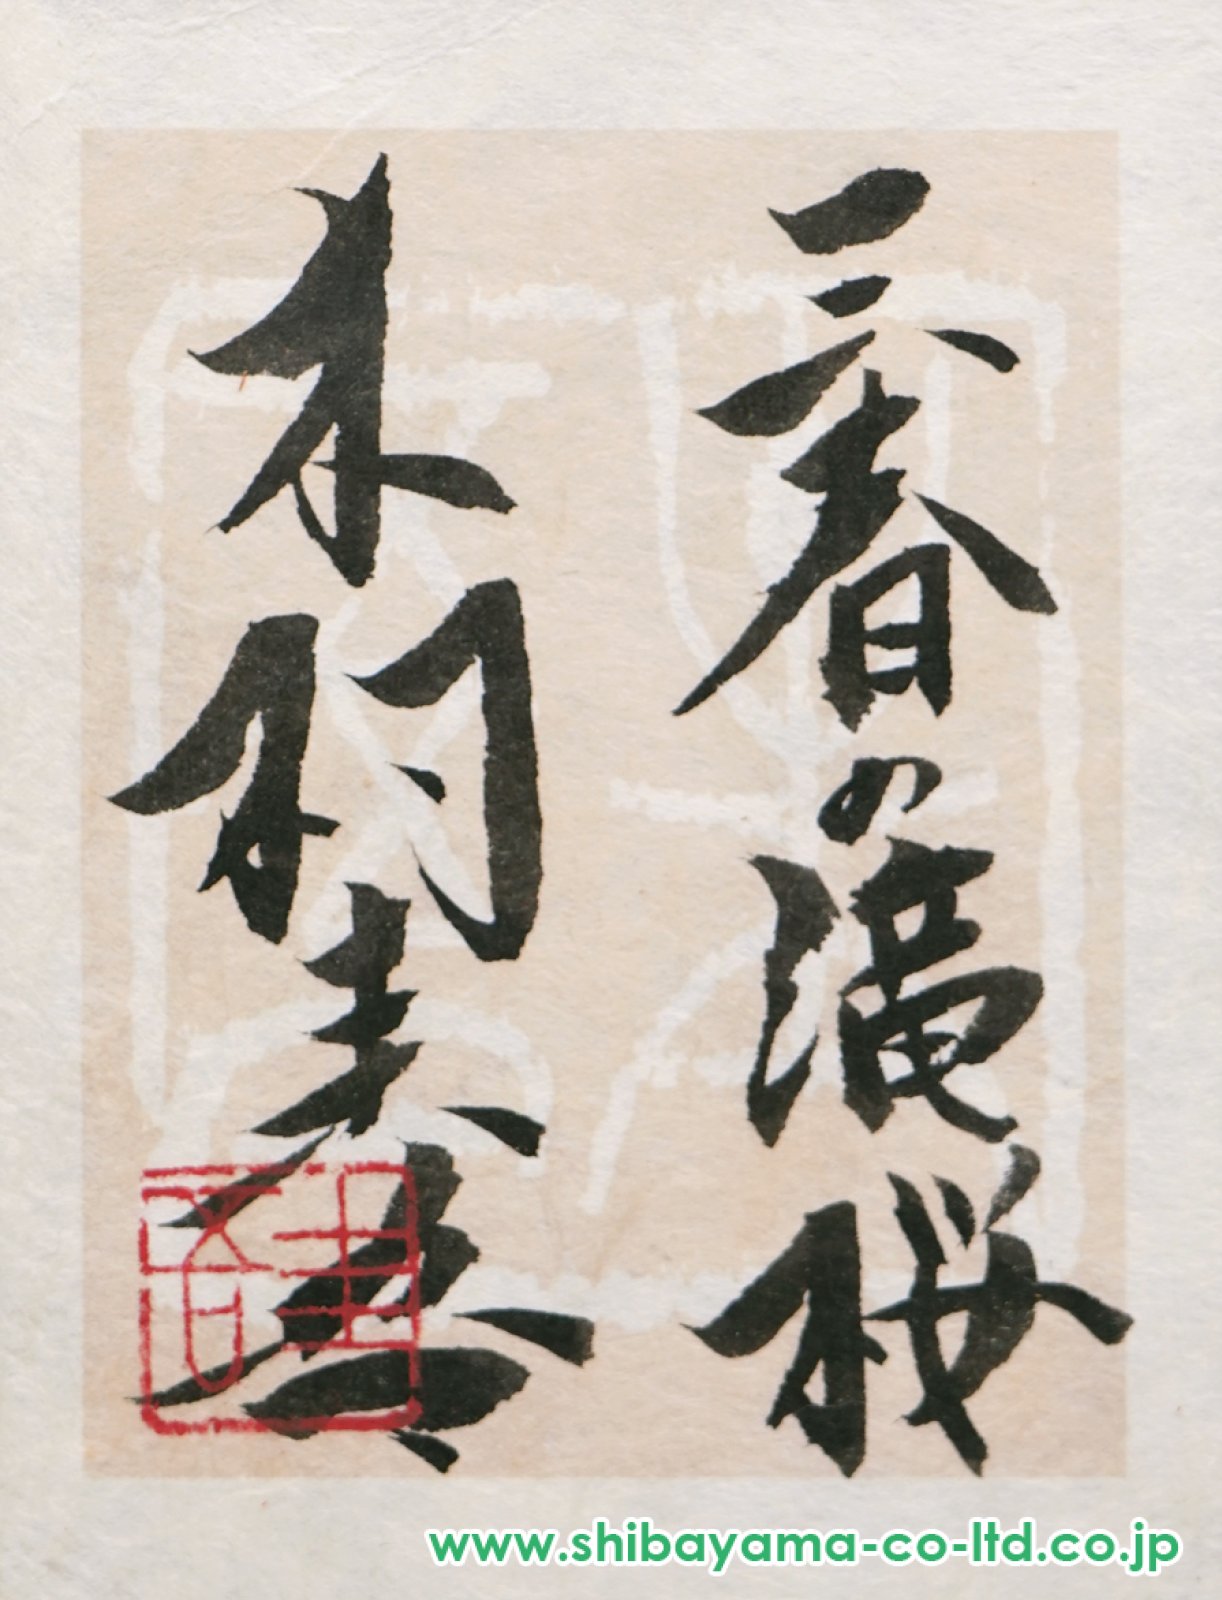 三春の滝桜
木村圭吾
圭吾
www.shibayama-co-ltd.co.jp